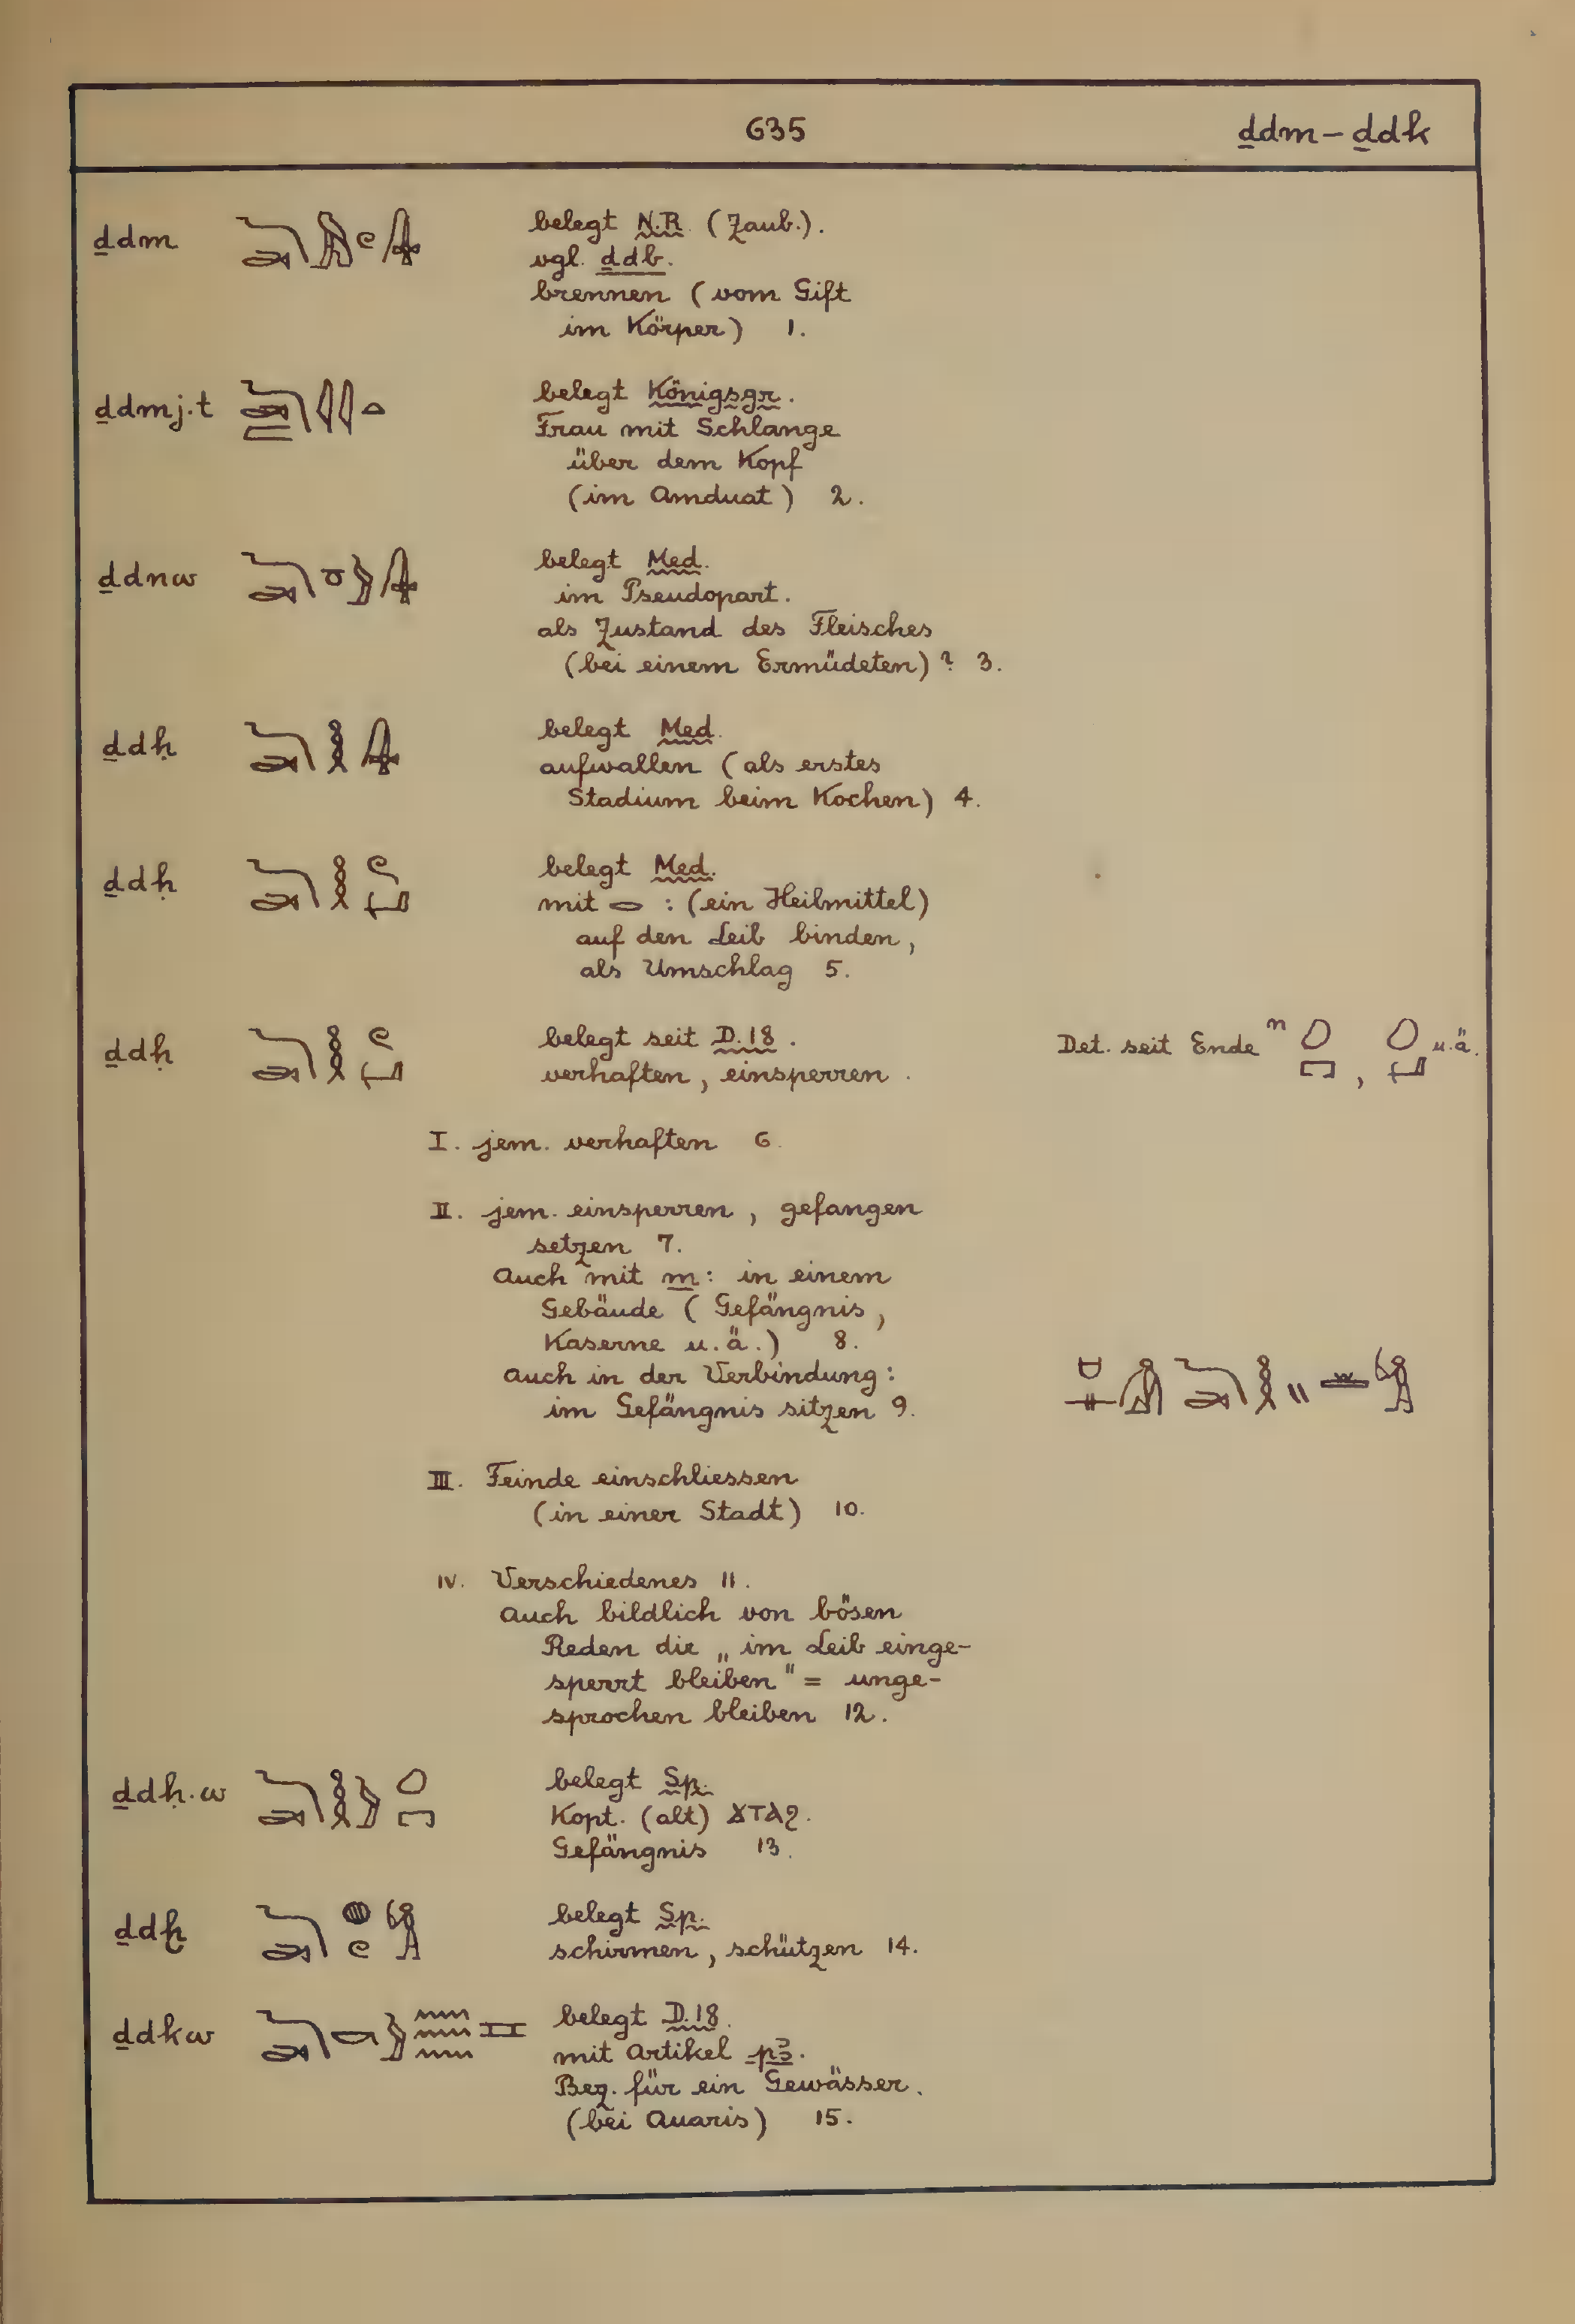 635 ḏdm – ḏdk
ḏdm belegt N.R. (Zaub.).
vgl. ḏdb.
brennen (vom Gift
im Körper) 1.
ḏdmj.t belegt Königsgr.
Frau mit Schlange
über dem Kopf
(im Amduat) 2.
ḏdnw belegt Med.
im Pseudopart.
als Zustand des Fleisches
(bei einem Ermüdeten)? 3.
ḏdḥ belegt Med.
aufwallen (als erstes
Stadium beim Kochen) 4.
ḏdḥ belegt Med.
mit 𓂋 : (ein Heilmittel)
auf den Leib binden,
als Umschlag 5.
ḏdḥ belegt seit D.18. Det. seit Ende n , u.ä.
verhaften, einsperren.
I. jem. verhaften 6.
II. jem. einsperren, gefangen
setzen 7.
Auch mit m: in einem
Gebäude (Gefängnis,
Kaserne u.ä.) 8.
Auch in der Verbindung:
im Gefängnis sitzen 9.
III. Feinde einschliessen
(in einer Stadt) 10.
IV. Verschiedenes 11.
Auch bildlich von bösen
Reden die „im Leib einge-
sperrt bleiben" = unge-
sprochen bleiben 12.
ḏdḥ.w belegt Sp.
Kopt. (alt) ϫⲧⲁϩ.
Gefängnis 13.
ḏdḫ belegt Sp.
schirmen, schützen 14.
ḏdkw belegt D.18.
mit Artikel pꜣ.
Bez. für ein Gewässer.
(bei Auaris) 15.